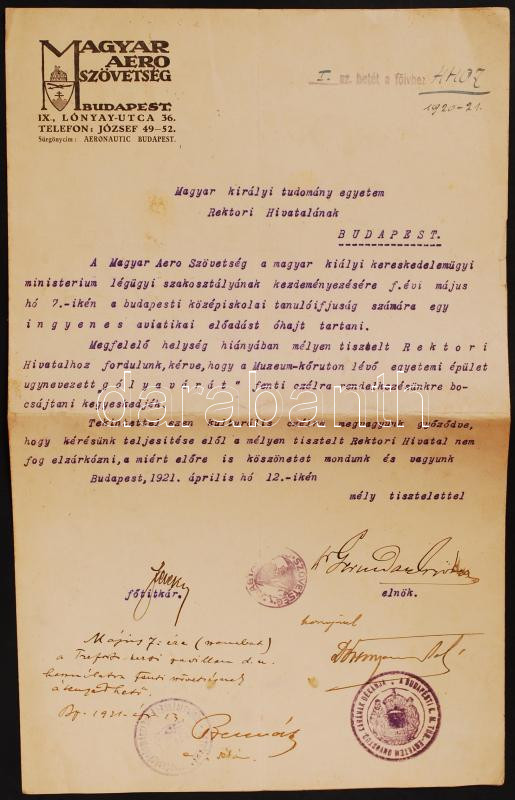 MAGYAR
AERO
SZÖVETSÉG
BUDAPEST.
IX., LÓNYAY-UTCA 36.
TELEFON: JÓZSEF 49-52.
Sürgönycím: AERONAUTIC BUDAPEST.
I. sz. betét a főívhez
1920-21.
Magyar királyi tudomány egyetem
Rektori Hivatalának
BUDAPEST.
A Magyar Aero Szövetség a magyar kiályi kereskedelemügyi
ministerium légügyi szakosztályának kezdeményezésére f.évi május
hó 7.-ikén a budapesti középiskolai tanulóifjuság számára egy
ingyenes aviatikai előadást óhajt tartani.
Megfelelő helység hiányában mélyen tisztelt Rektori
Hivatalhoz fordulunk, kérve, hogy a Muzeum-kőruton lévő egyetemi épület
ugynevezett gólyavárát" fenti czélra rendelkezésünkre bo-
csájtani kegyeskedjék.
Tekintettel ezen kulturális czélra megvagyunk győződve,
hogy kérésünk teljesitése elől a mélyen tisztelt Rektori Hivatal nem
fog elzárkózni, a miért előre is köszönetet mondunk és vagyunk
Budapest, 1921. április hó 12.-ikén
mély tisztelettel
főtitkár.
elnök.
Május 7.
a
Bp. 1921. 13.
darabanth